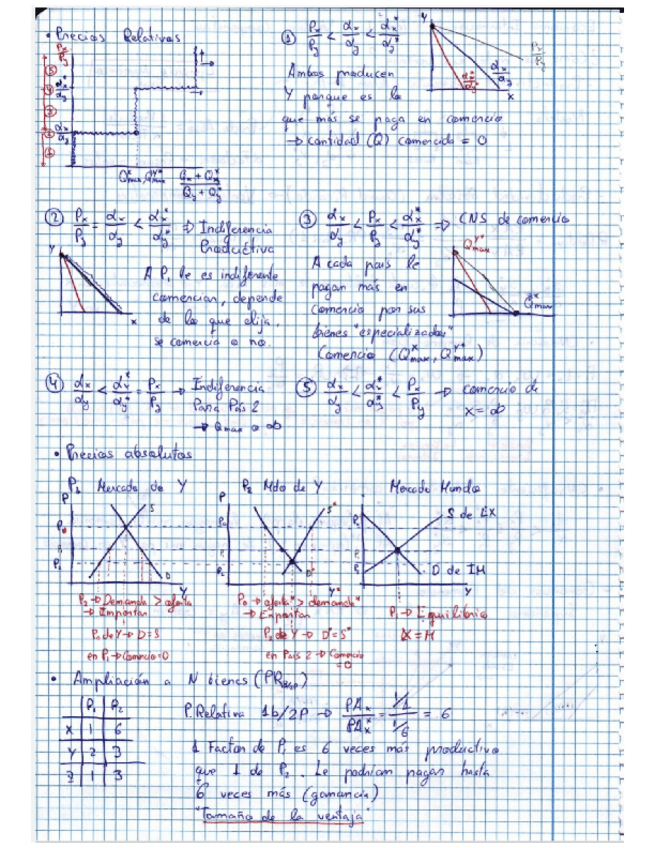 • Precios Relativos
Px/Py
αx*/αy*
αx/αy
Qxmax, Qy*max
Qx + Qx*/Qy + Qy*
① Px/Py < αx/αy < αx*/αy*
Ambos producen
Y porque es lo
que más se paga en comercio
→ cantidad (Q) comerciada = 0
y
Px/Py
αx/αy
αx*/αy*
x
② Px/Py = αx/αy < αx*/αy* ⇒ Indiferencia
Productiva
A P1 le es indiferente
comerciar, depende
de lo que elija,
se comercia o no.
y
x
③ αx/αy < Px/Py < αx*/αy* ⇒ CNS de comercio
A cada país le
pagan más en
comercio por sus
bienes "especializados"
Comercio (Qxmax, Qy*max)
Qy*max
Qxmax
④ αx/αy < αx*/αy* = Px/Py → Indiferencia
Para País 2
→ Qmax o ∞
⑤ αx/αy < αx*/αy* < Px/Py → comercio de
x = ∞
• Precios absolutos
P1 Mercado de Y
P
S
D
Y
P2 Mdo de Y
P
S*
D*
Y*
Mercado Mundo
S de EX
D de IM
Y
P2 → Demanda > oferta
→ Importan
P0 de Y → D=S
en P1 → Comercio=0
P0 → oferta* > demanda*
→ Exportan
P2 de Y → D*=S*
en País 2 → Comercio
=0
P1 → Equilibrio
X = M
• Ampliación a N bienes (PR)
P1 P2
X 1 6
Y 2 3
Z 1 3
P.Relativa 1b/2P → PAx/PAx* = 1/1 / 1/6 = 6
1 Factor de P1 es 6 veces más productivo
que 1 de P2. Le podrían pagar hasta
6 veces más (ganancia)
"Tamaño de la ventaja"